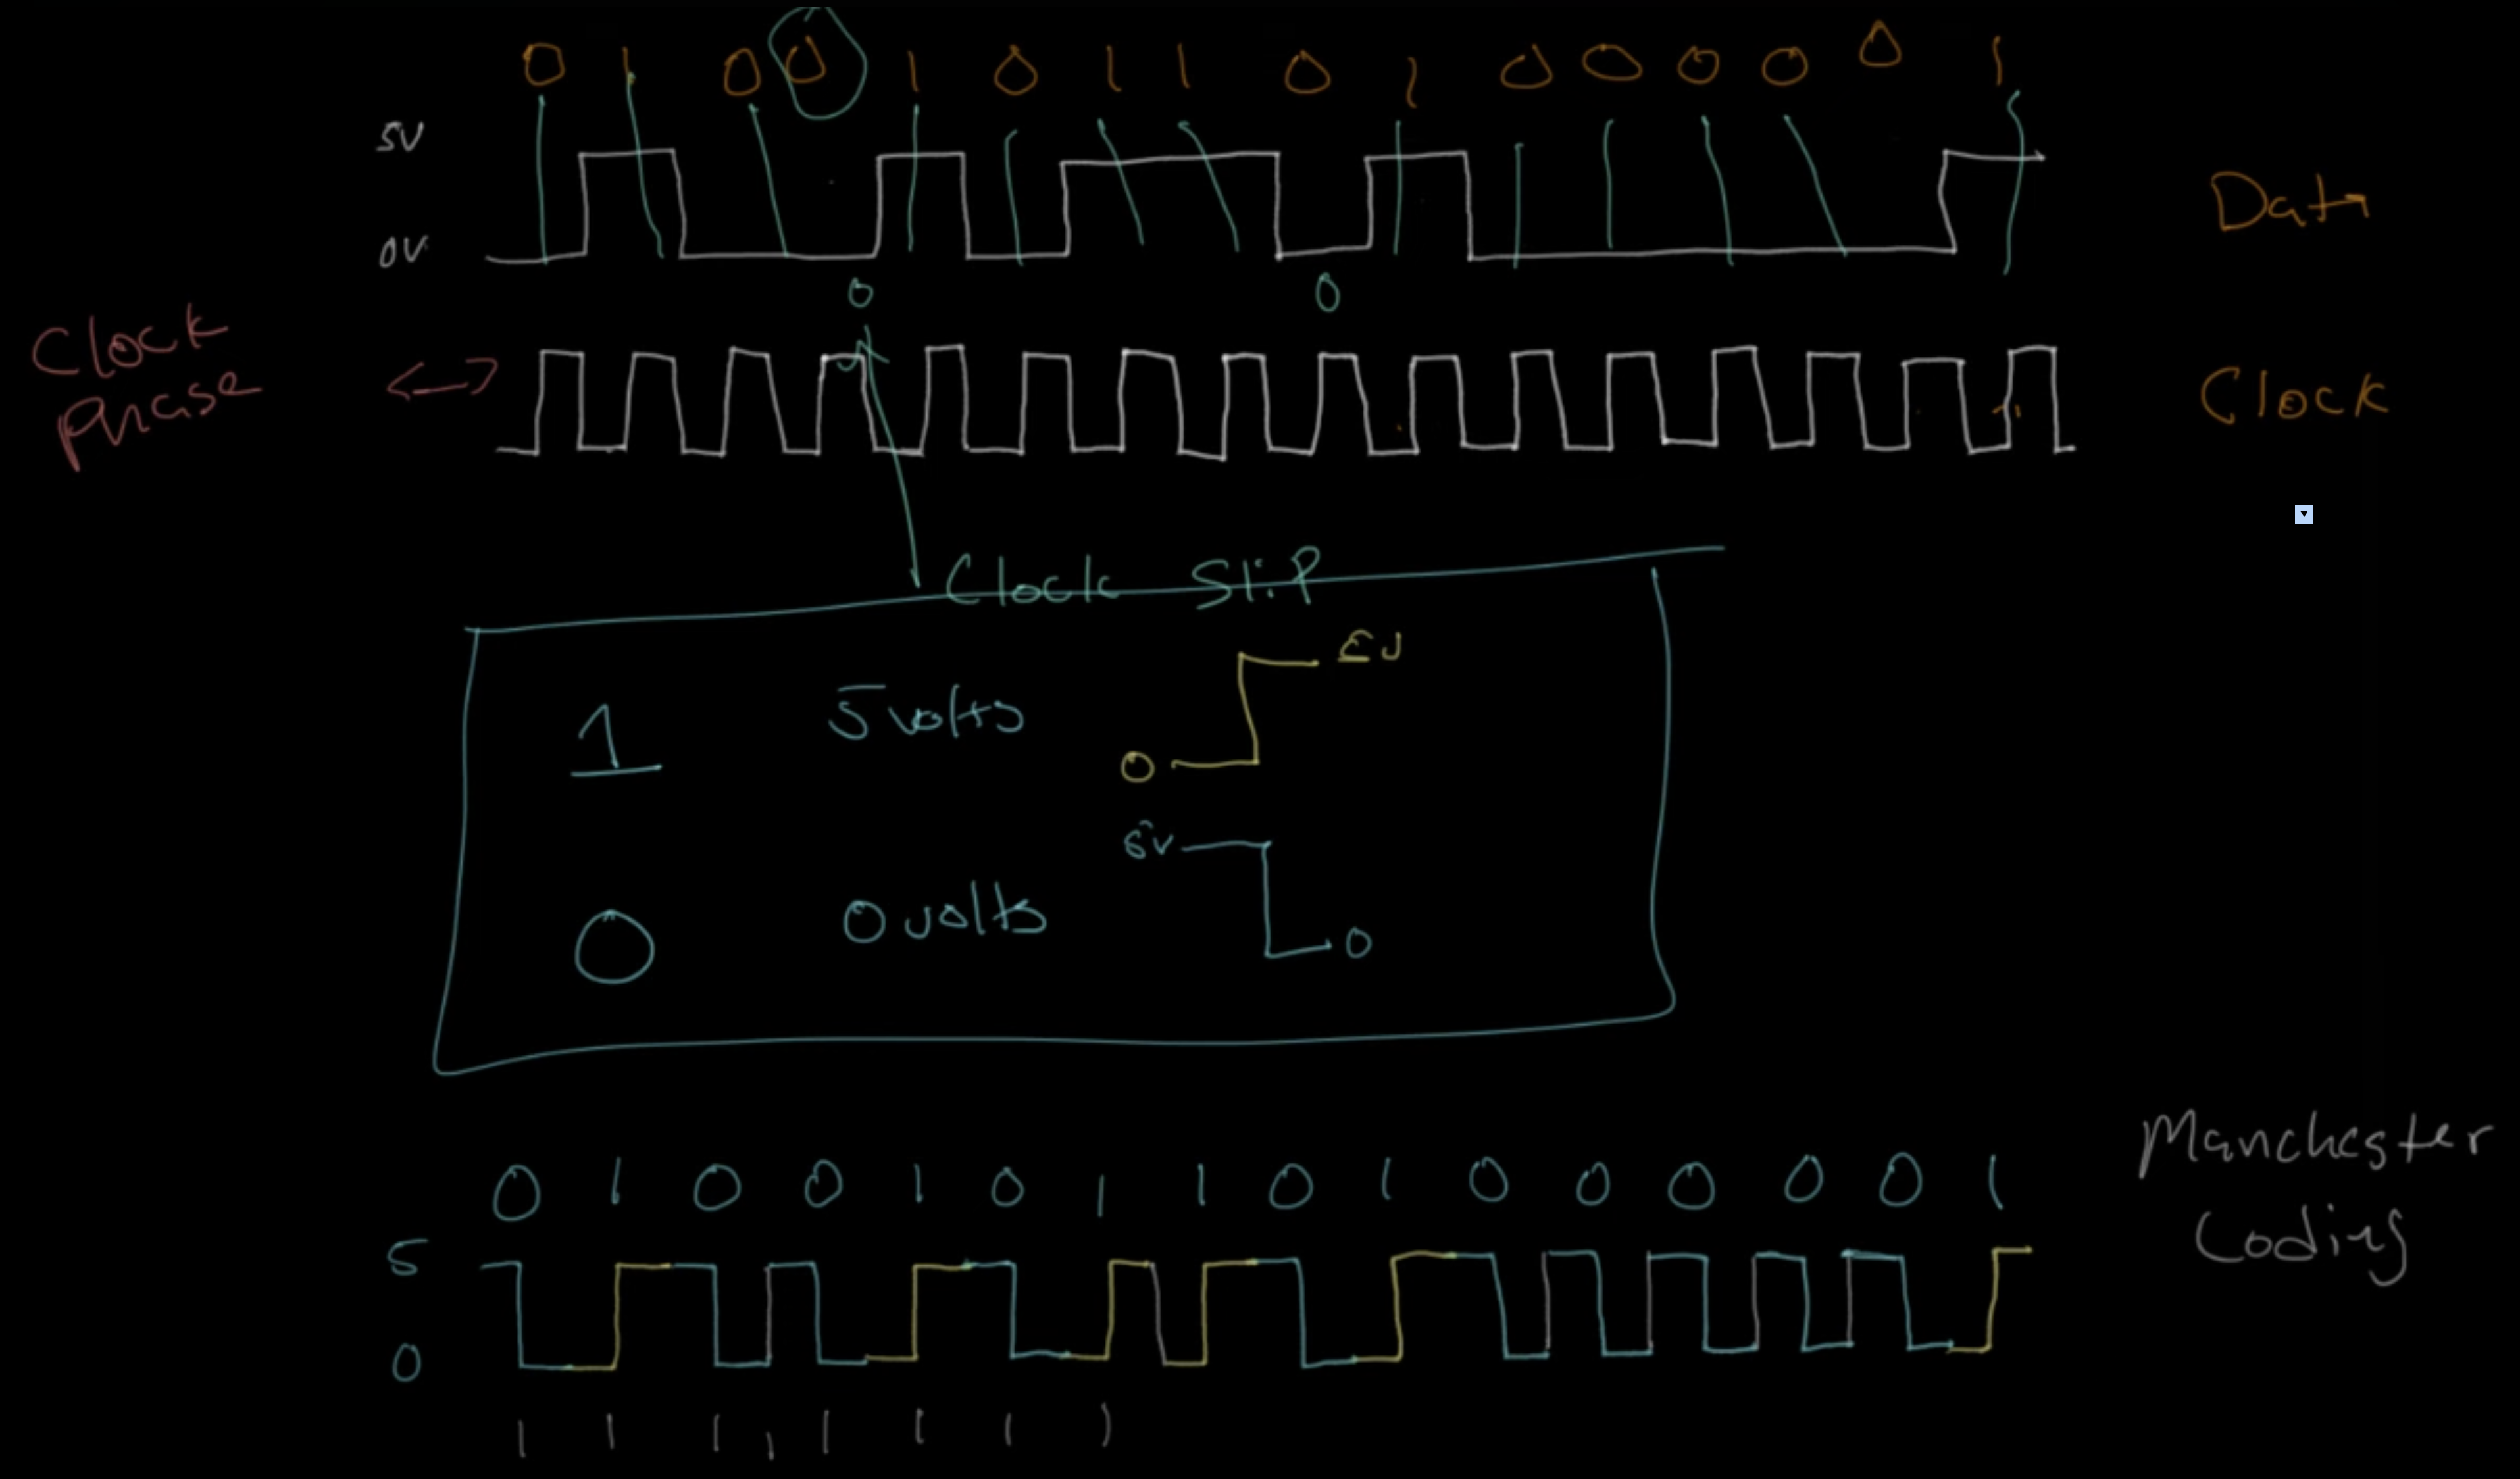 0 1 0 0 1 0 1 1 0 1 0 0 0 0 0 1
5V
0V
Data
0 0
Clock
Phase
Clock
Clock Slip
1 5 volts
0 5V
5V
0 0 volts
0
Manchester
Coding
0 1 0 0 1 0 1 1 0 1 0 0 0 0 0 1
5
0